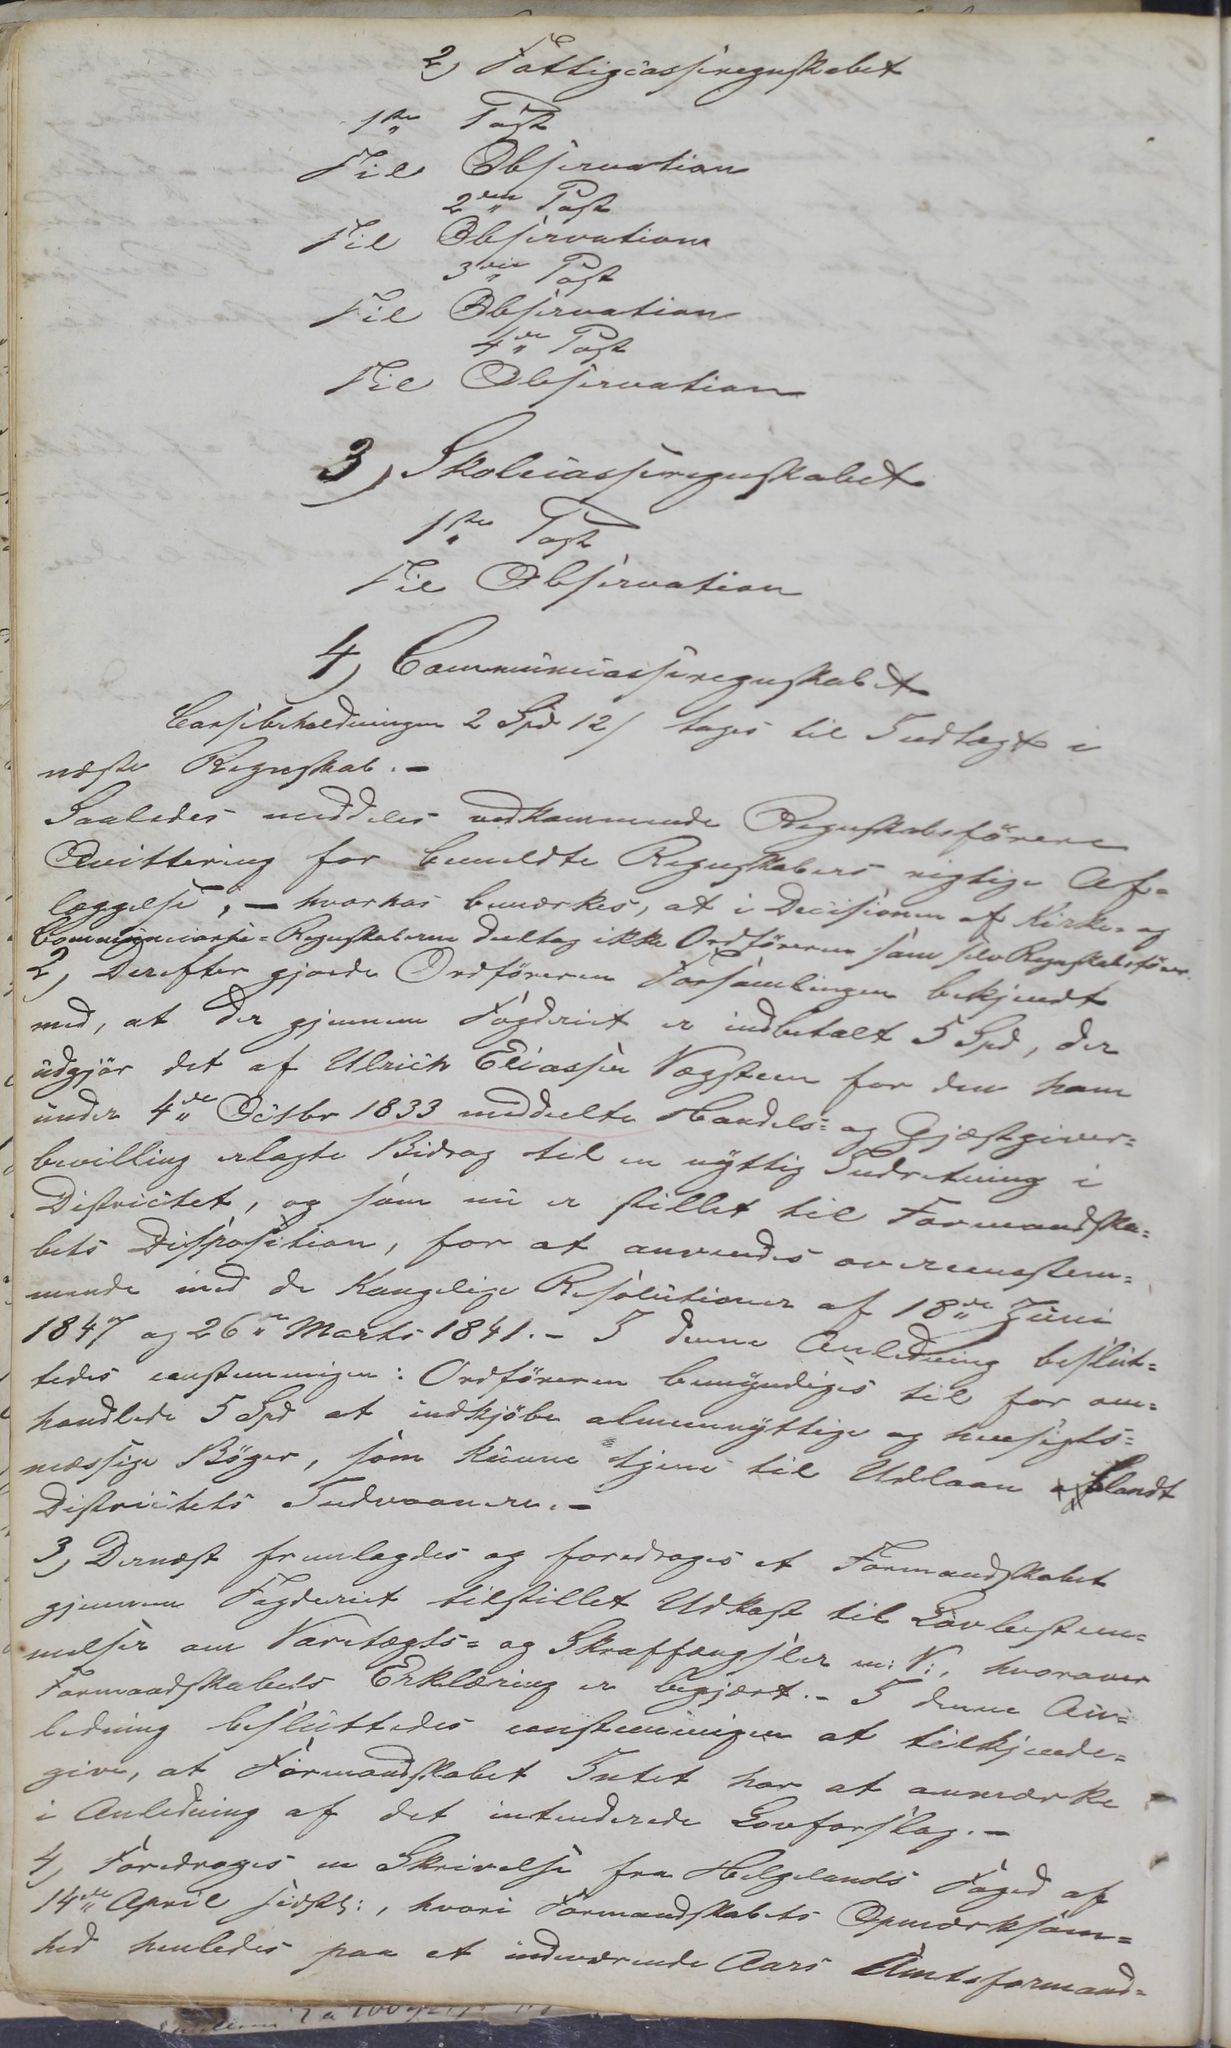 2, Fattigcasseregnskabet
1ste Post
Til Observation
2den Post
Til Observation
3die Post
Til Observation
4de Post
Til Observation
3, Skolecasseregnskabet
1ste Post
Til Observation
4, Communecasseregnskabet
Cassebeholdningen 2 Spd 12 / tages til Indtægt i
næste Regnskab. -
Saaledes meddeles vedkommende Regnskabsförere
Qvittering for bemeldte Regnskabers rigtige Af=
læggelse, - hvorhos bemærkes, at i Decisionen af Kirke- og
Communecasse=Regnskaberne deeltog ikke Ordföreren som selv Regnskabsförer.
2, Derefter gjorde Ordföreren Forsamlingen bekjendt
med, at der gjennem Fogderiet er indbetalt 5 Spd, der
udgjör det af Ulrich Eliassen Vægsteen for den ham
under 4de Octbr 1833 meddeelte Handels= og Gjæstgiver=
bevilling erlagte Bidrag til en nyttig Indretning i
Districtet, og som nu er stillet til Formandska=
bets Disposition, for at anvendes overeenstem=
mende med de Kongelige Resolutioner af 18de Juni
1847 og 26de Marts 1841. - I denne Anledning beslut=
tedes eenstemmigen: Ordföreren bemyndiges til for om=
handlede 5 Spd at indkjöbe almeennyttige og hensigts=
mæssige Böger, som kunne tjene til Udlaan blandt
Districtets Indvaanere. -
3, Dernæst fremlagdes og foredroges et Formandskabet
gjennem Fogderiet tilstillet Udkast til Lovbestem=
melser om Varetægts= og Straffængsler m: V:, hvorover
Formandskabets Erklæring er begjært. - I denne An=
ledning besluttedes eenstemmigen at tilkjende=
give, at Formandskabet Intet har at anmærke
i Anledning af det intenderede Lovforslag. -
4, Foredroges en Skrivelse fra Helgelands Foged af
14de April sidstl:, hvori Formandskabets Opmærksom=
hed henledes paa et indeværende Aars Amtsformand=